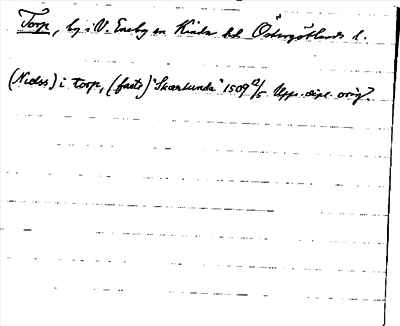 Torp, by i V. Eneby sn Kinds hd Östergötlands l.
(Nielss) i torp, (faste) "Skærlunda" 1509 12/5 Upps. dipl. orig.